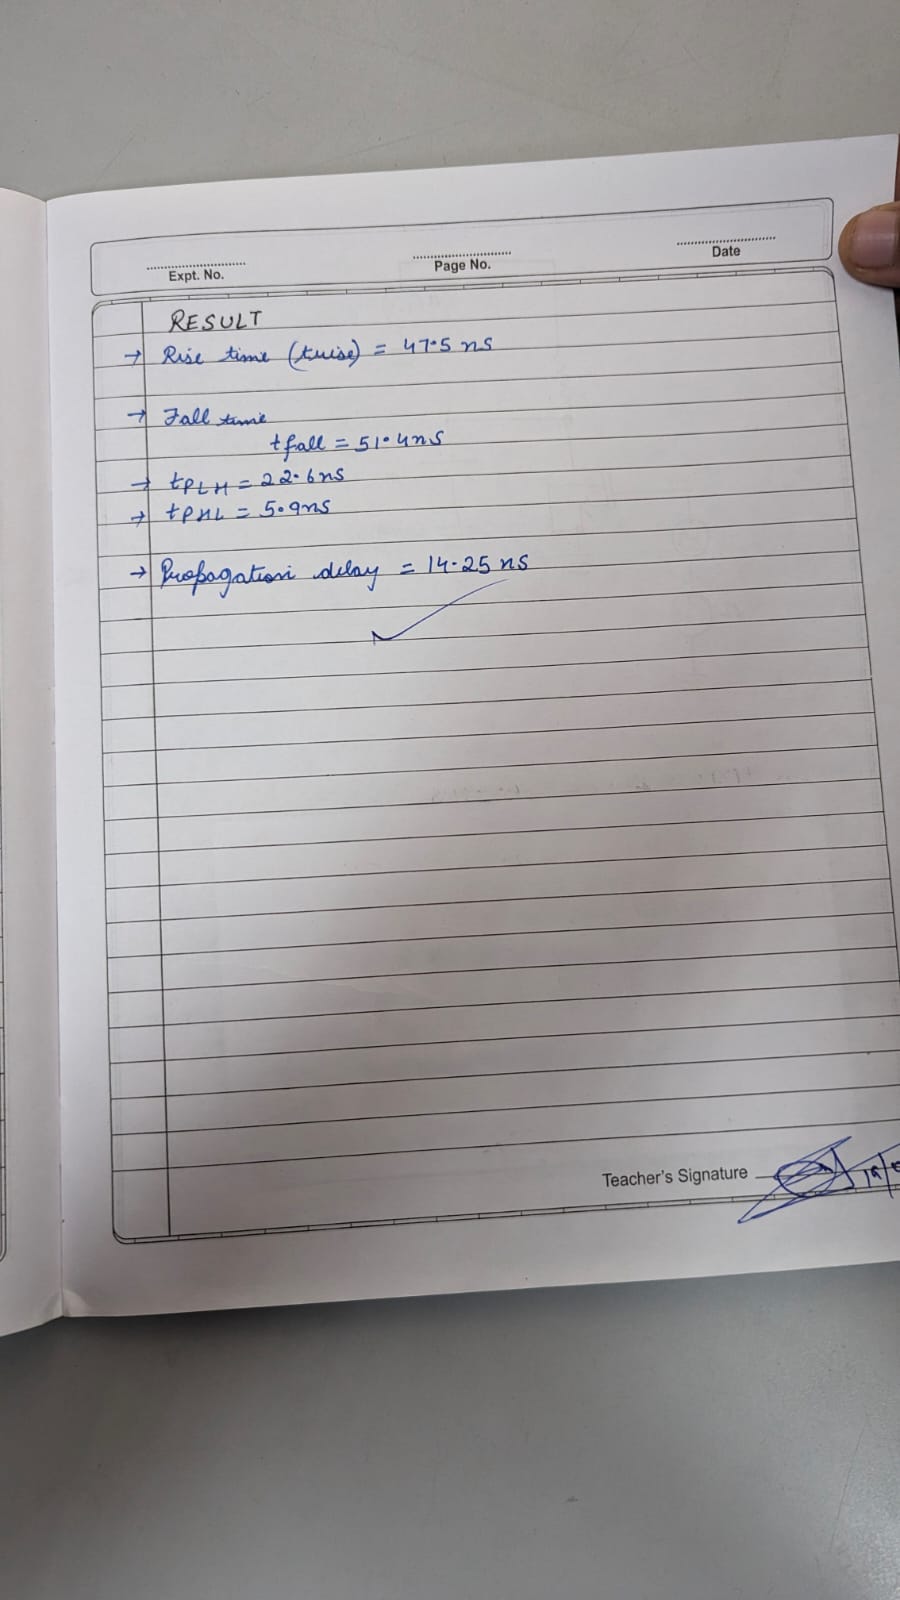 Expt. No.
Page No.
Date
RESULT
→ Rise time (trise) = 47.5 ns
→ Fall time
tfall = 51.4ns
→ tPLH = 22.6ns
→ tPHL = 5.9ns
→ Propagation delay = 14.25 ns
Teacher's Signature